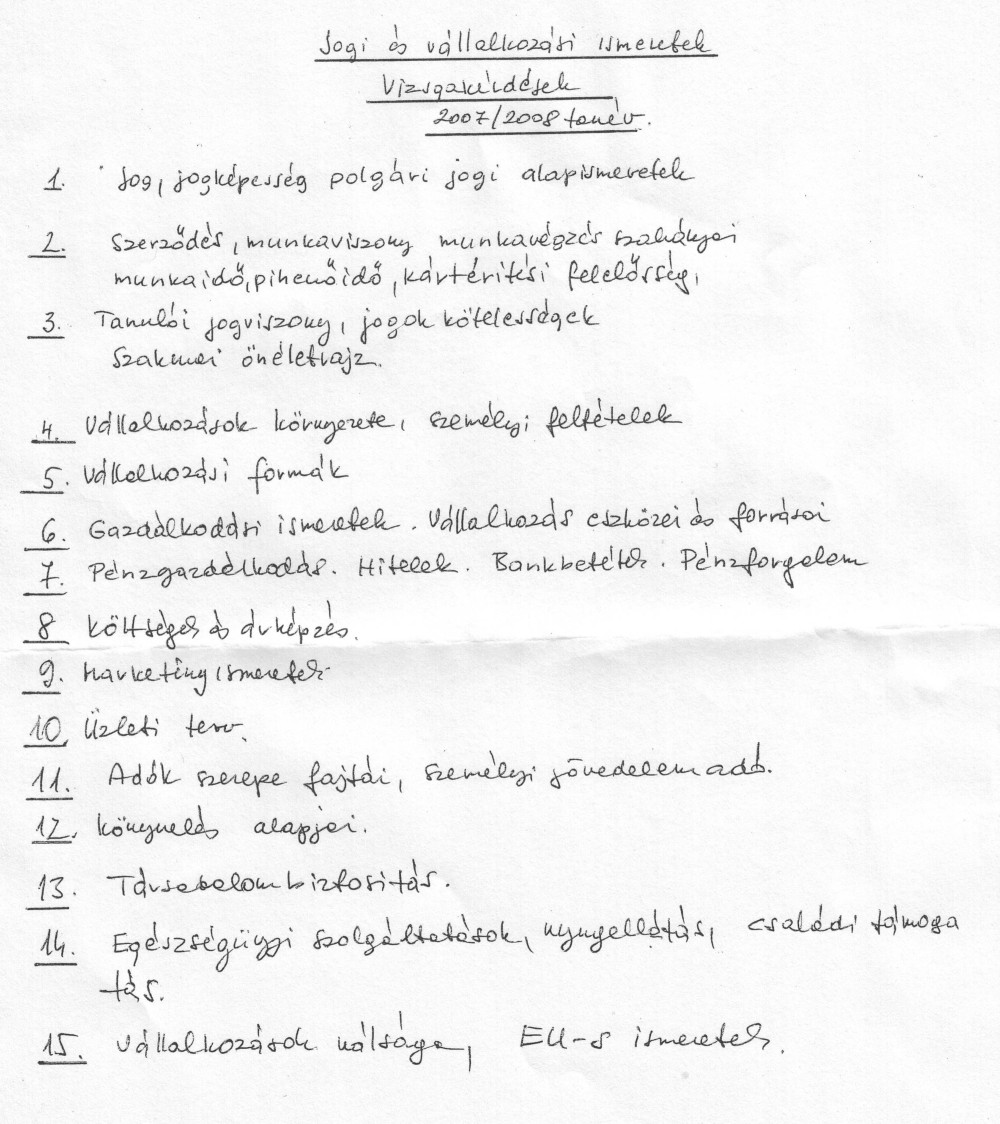 Jogi és vállalkozási ismeretek
Vizsgakérdések
2007/2008 tanév.
1. Jog, jogképesség polgári jogi alapismeretek
2. Szerződés, munkaviszony munkavégzés szabályai
munkaidő, pihenőidő, kártérítési felelősség,
3. Tanulói jogviszony, jogok kötelességek
Szakmai önéletrajz.
4. Vállalkozások környezete, személyi feltételek
5. Vállalkozási formák
6. Gazdálkodási ismeretek. Vállalkozás eszközei és forrásai
7. Pénzgazdálkodás. Hitelek. Bankbetétek. Pénzforgalom
8 Költségek és árképzés.
9. Marketing ismeretek
10. Üzleti terv.
11. Adók szerepe fajtái, személyi jövedelem adó.
12. Könyvelés alapjai.
13. Társadalombiztosítás.
14. Egészségügyi szolgáltatások, nyugellátás, családi támoga
tás.
15. Vállalkozások válsága, EU-s ismeretek.